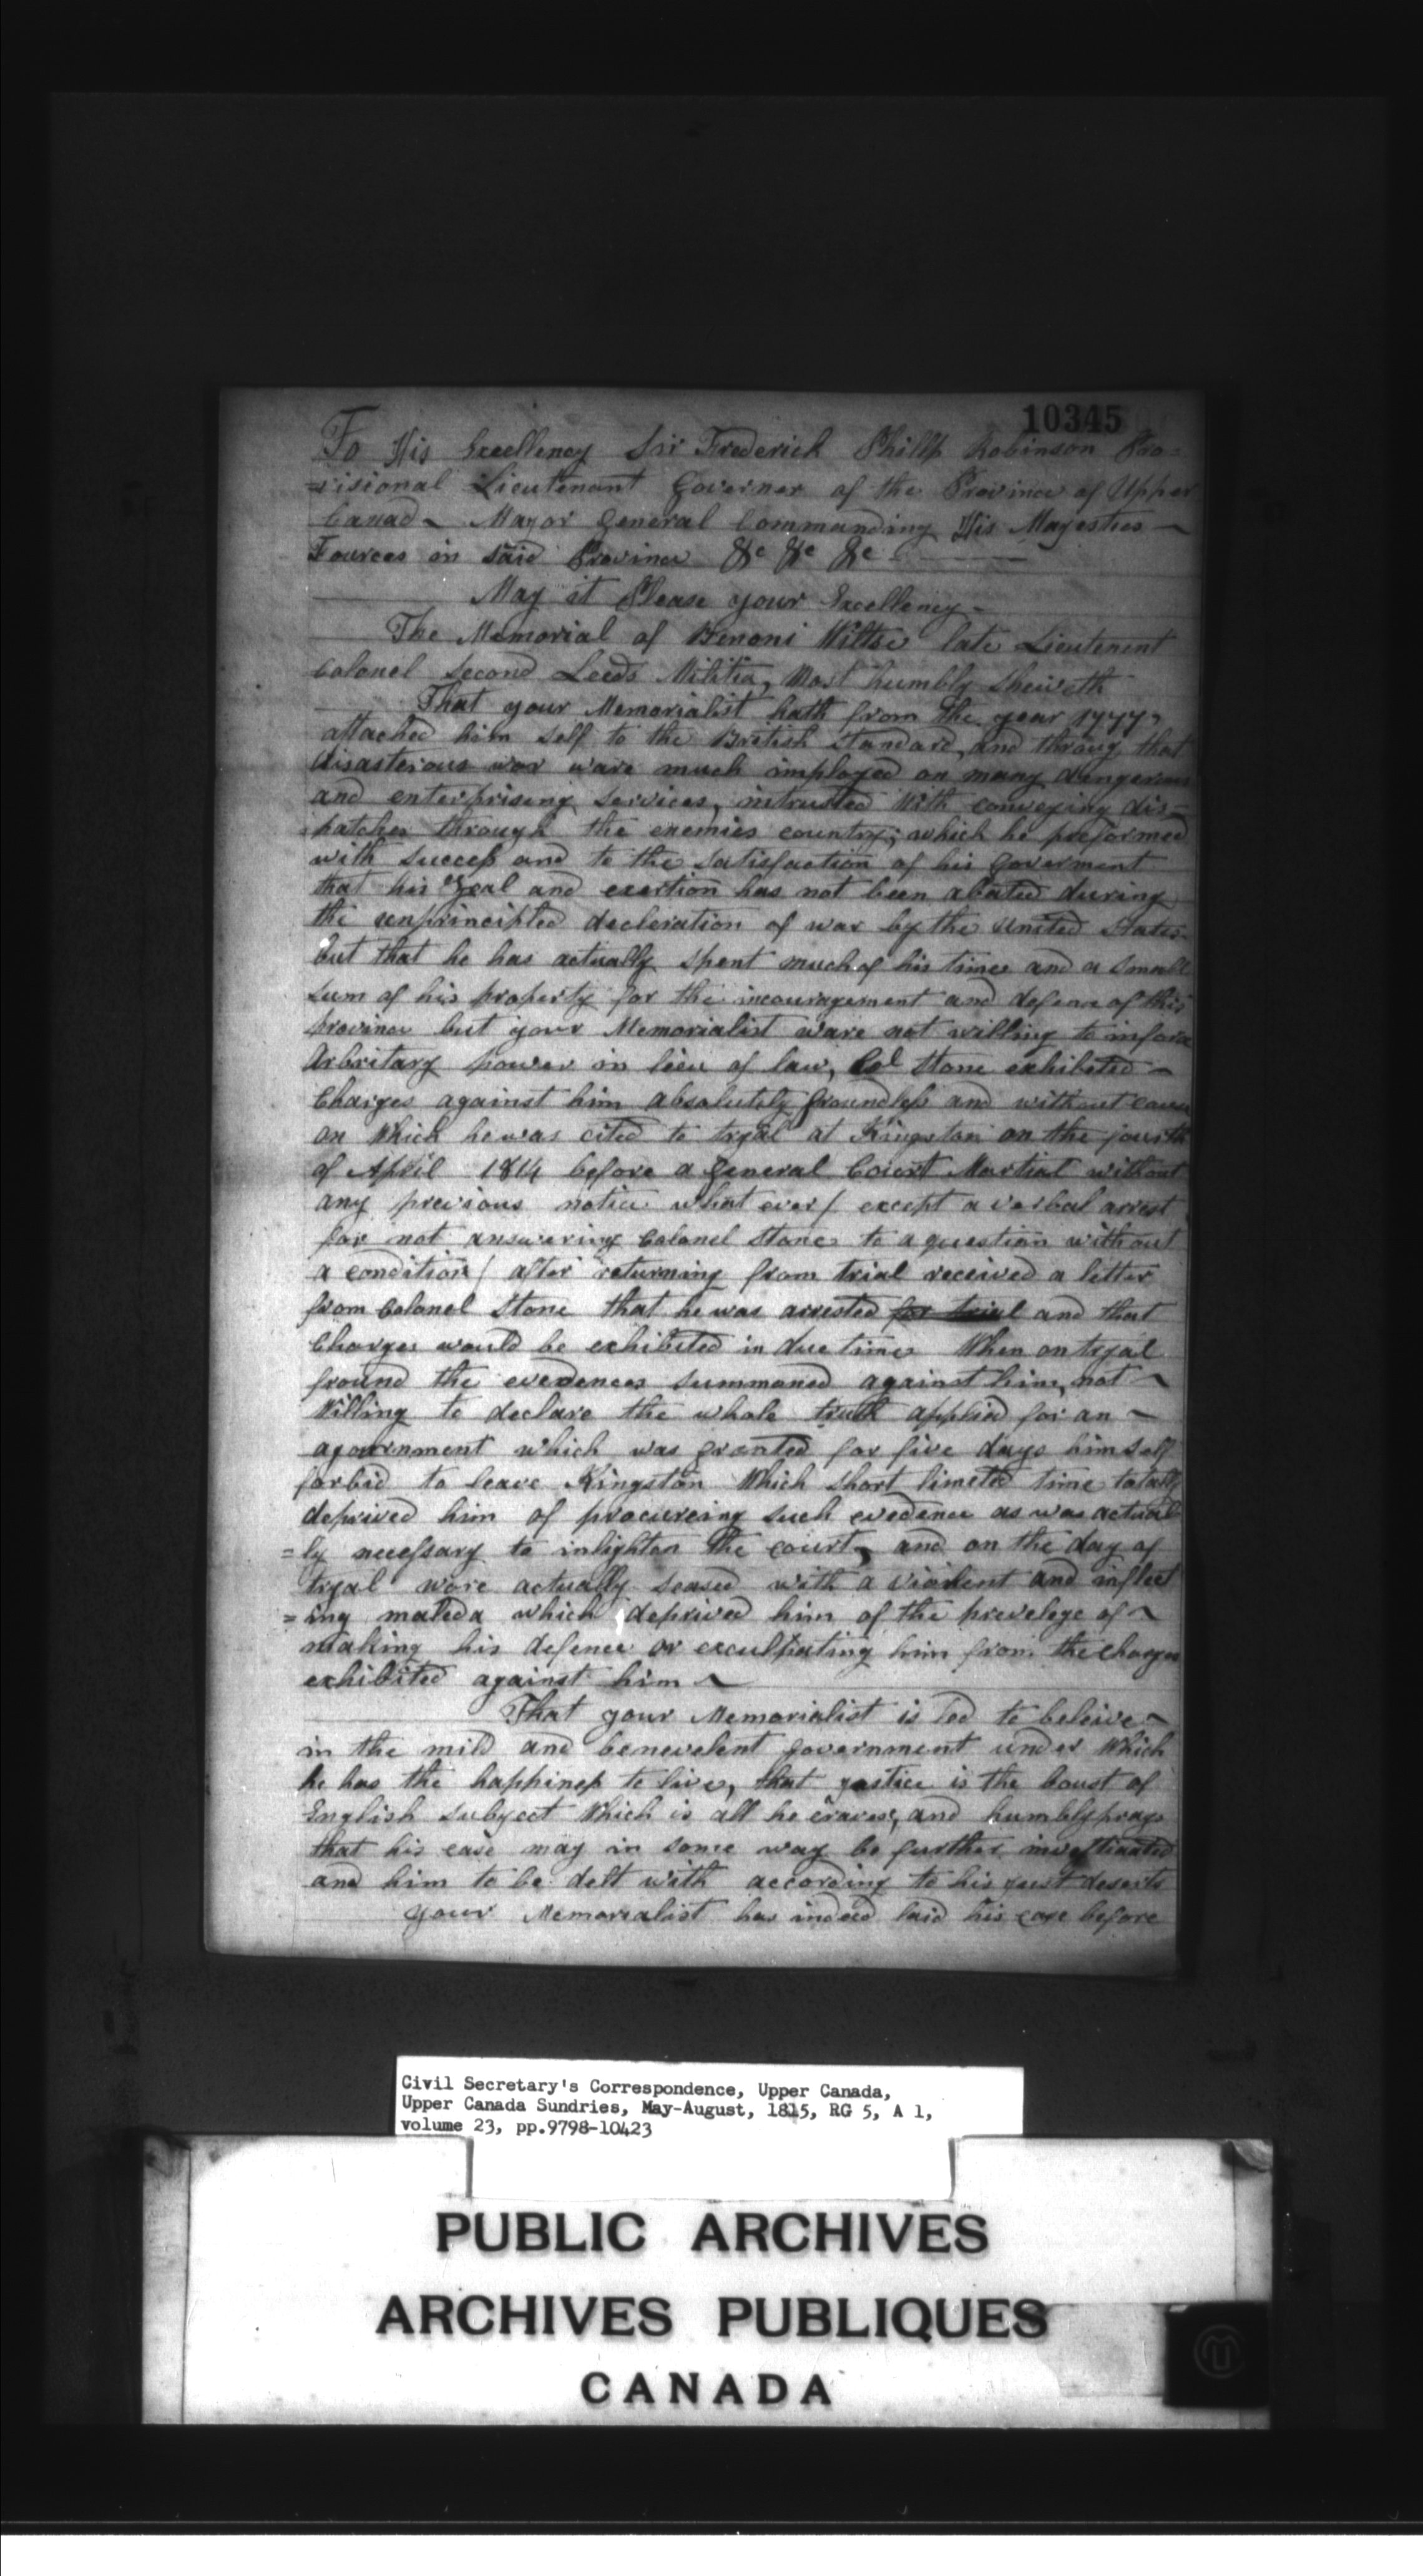 10345
To His Excellency Sir Frederick Phillip Robinson Pro=
=visional Lieutenant Governer of the Province of Upper
Canad~ Mayor General Commanding His Mayesties ~
Fources in said Province &c &c &c
May it Please your Excellency -
The Memorial of Benoni Wiltse late Lieutenent
Colonel Second Leeds Militia, Most humbly sheweth
That your Memorialist hath from the year 1777
attached him self to the British standard, and throug that
disasterous war ware much imployed on many dangerous
and enterprising services, intrusted With conveying dis=
patches through the enemies country; which he preformed
with success and to the satisfaction of his Goverment
that his Zeal and exertion has not been abated during
the unprincipled decleration of war by the United States
but that he has actually spent much of his time and a small
sum of his property for the incouragement and defence of this
province but your Memorialist ware not willing to inforce
Arbritary power in lieu of law, Col Stone exhibited ~
Charges against him absolutely groundless and without cause
on Which he was cited to tryal at Kingston on the fourth
of April 1814 before a General Court Martial without
any previous notice what ever / except a verbal arrest
for not answering Colonel Stone to a question without
a condition / after returning from trial received a letter
from Colonel Stone that he was arrested for trial and that
Charges would be exhibited in due time When on tryal
found the evedences summoned against him, not ~
Willing to declare the whole truth applied for an ~
ajournment which was granted for five days himself
forbid to leave Kingston Which short limeted time totally
deprived him of procureing such evedence as was actual
=ly necessary to inlighten the court, and on the day of
tryal ware actually seased with a violent and inflect
=ing maleda which deprived him of the prevelege of ~
making his defence or exculpating him from the charges
exhibited against him ~
That your Memorialist is led to beleive ~
in the mild and benevelent government under Which
he has the happiness to live, that justice is the boust of
English subject Which is all he craves, and humbly prays
that his case may in some way be further investiaated
and him to be delt with according to his just deserts
Your Memorialist has indeed laid his case before
Civil Secretary's Correspondence, Upper Canada,
Upper Canada Sundries, May-August, 1815, RG 5, A 1,
volume 23, pp.9798-10423
PUBLIC ARCHIVES
ARCHIVES PUBLIQUES
CANADA